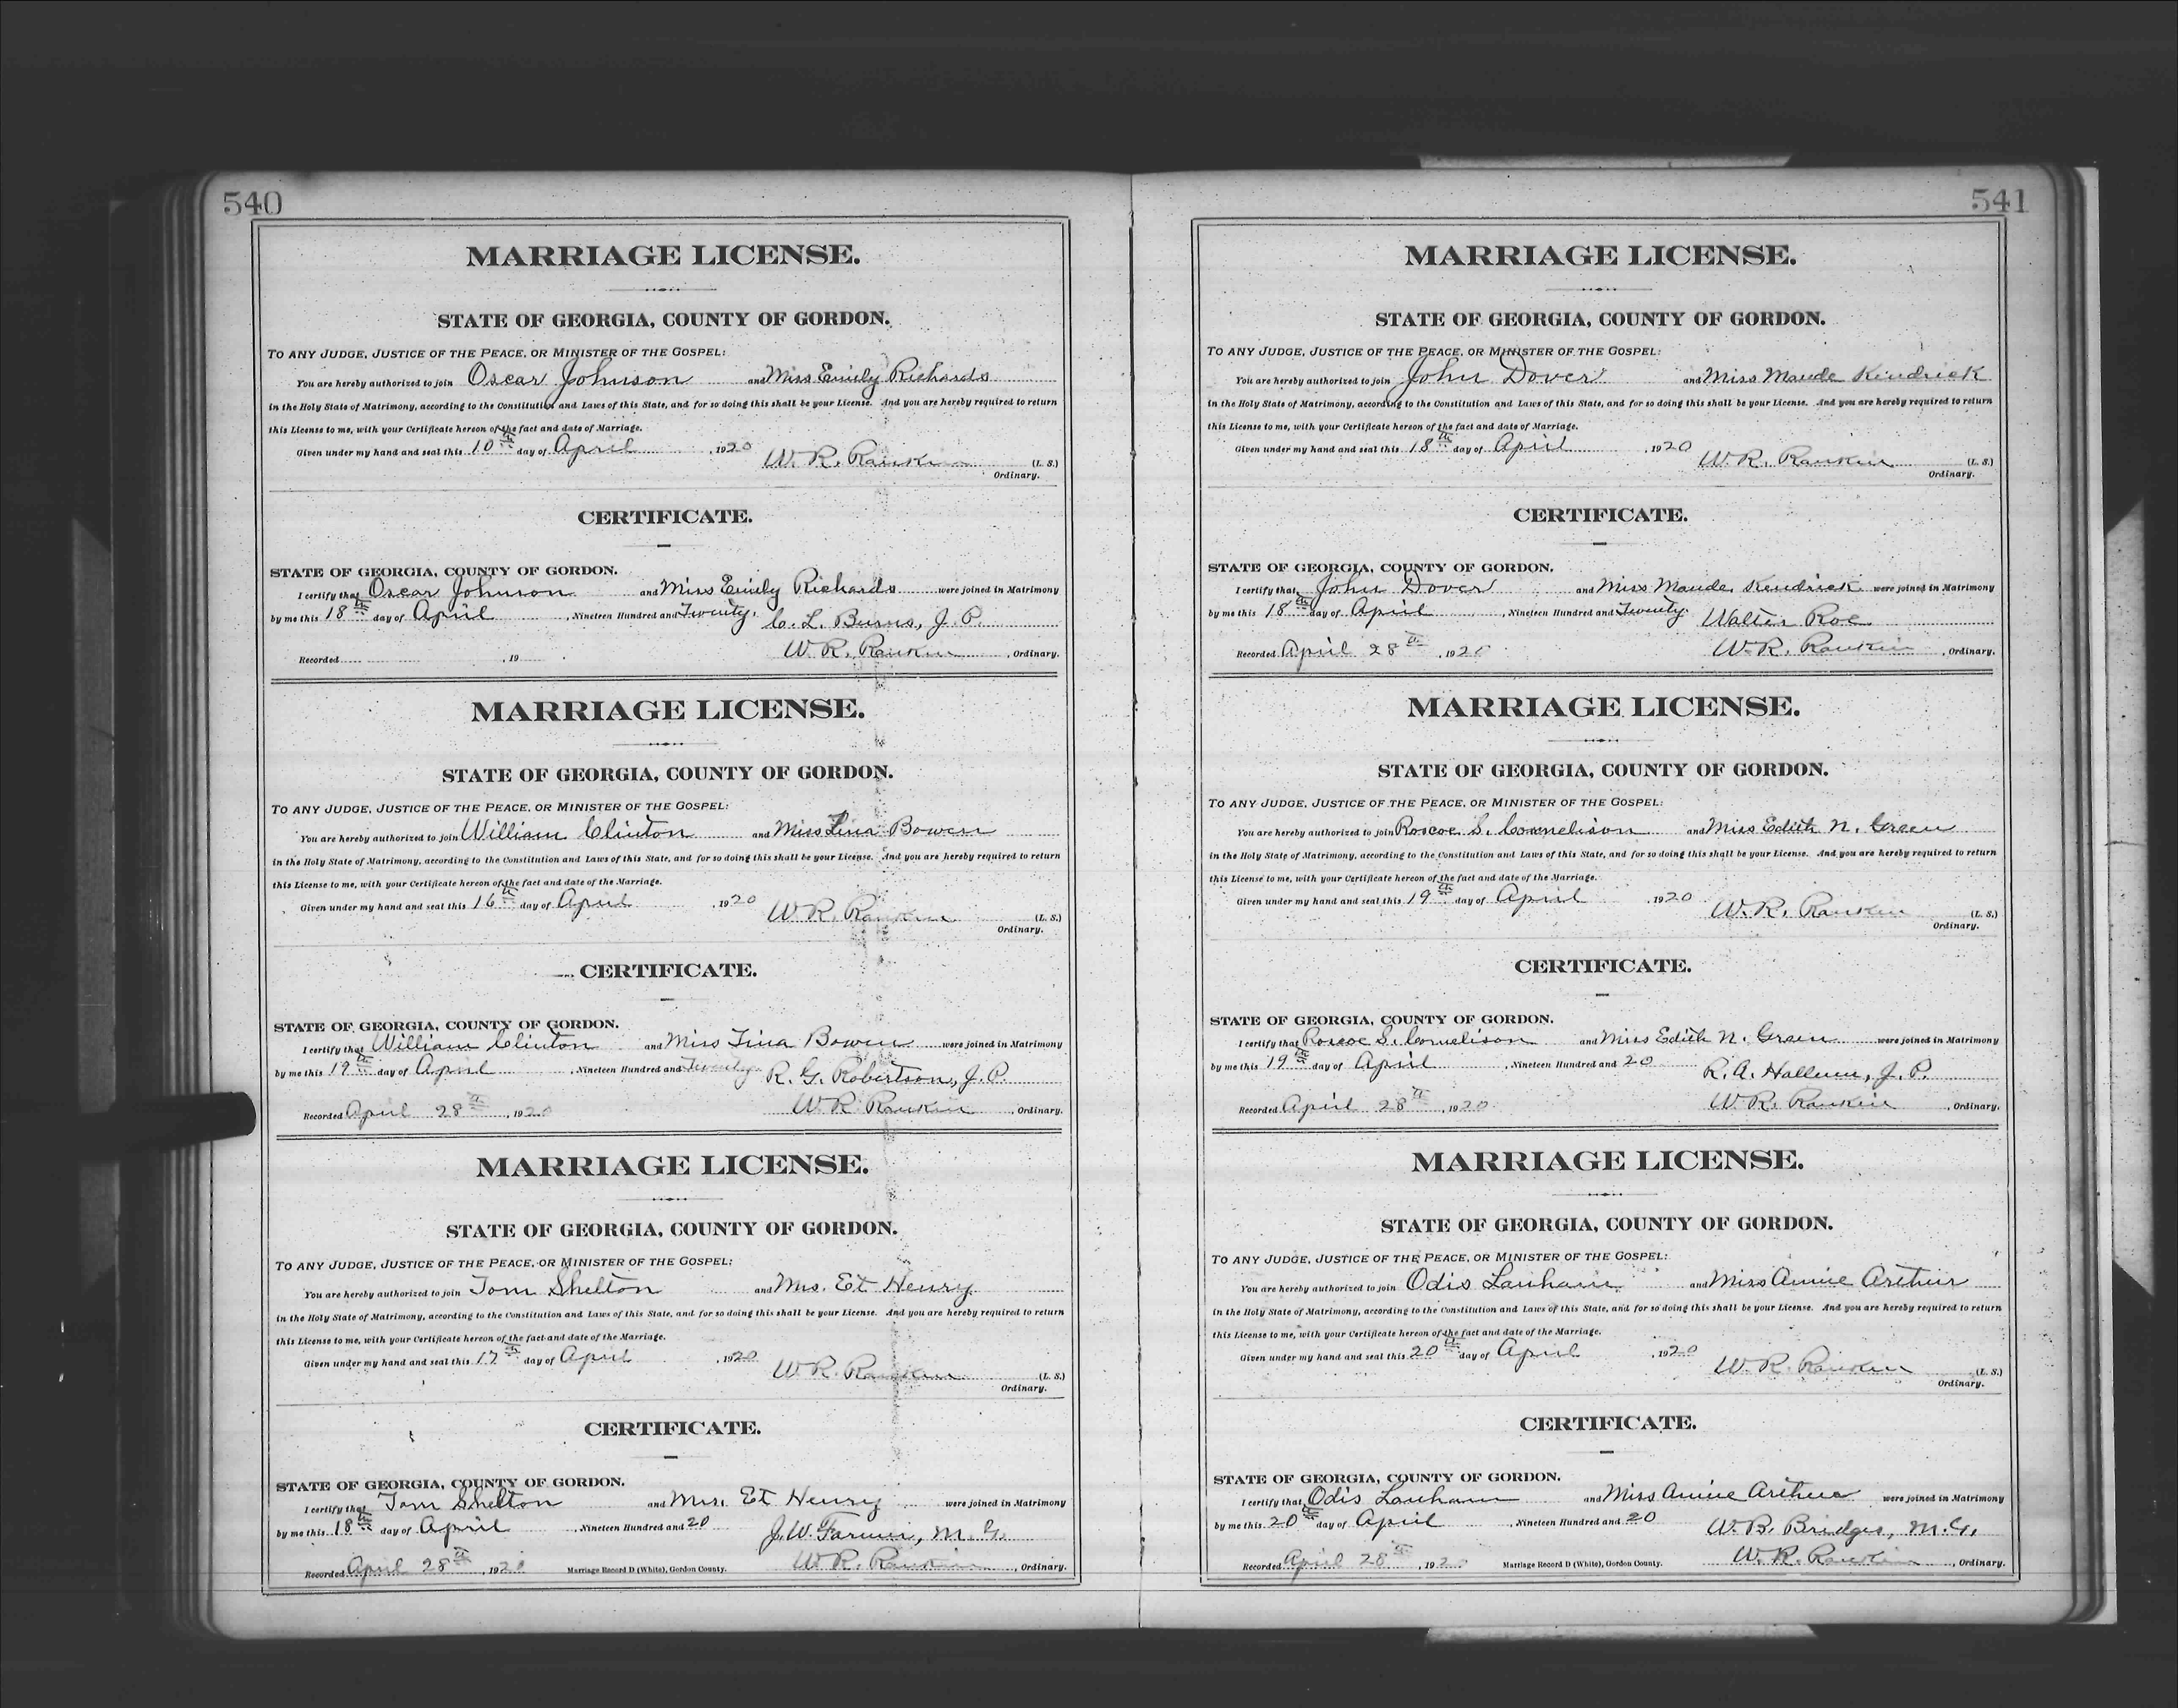 540
MARRIAGE LICENSE.
STATE OF GEORGIA, COUNTY OF GORDON.
TO ANY JUDGE, JUSTICE OF THE PEACE, OR MINISTER OF THE GOSPEL:
You are hereby authorized to join Oscar Johnson and Miss Emily Richards
in the Holy State of Matrimony, according to the Constitution and Laws of this State, and for so doing this shall be your License. And you are hereby required to return
this License to me, with your Certificate hereon of the fact and date of Marriage.
Given under my hand and seal this 10th day of April, 1920 W. R. Rankin (L. S.)
Ordinary.
CERTIFICATE.
STATE OF GEORGIA, COUNTY OF GORDON.
I certify that Oscar Johnson and Miss Emily Richards were joined in Matrimony
by me this 18th day of April, Nineteen Hundred and Twenty. C. L. Burns, J. P.
Recorded , 19 W. R. Rankin, Ordinary.
MARRIAGE LICENSE.
STATE OF GEORGIA, COUNTY OF GORDON.
TO ANY JUDGE, JUSTICE OF THE PEACE, OR MINISTER OF THE GOSPEL:
You are hereby authorized to join William Clinton and Miss Tina Bowen
in the Holy State of Matrimony, according to the Constitution and Laws of this State, and for so doing this shall be your License. And you are hereby required to return
this License to me, with your Certificate hereon of the fact and date of the Marriage.
Given under my hand and seal this 16th day of April, 1920 W. R. Rankin (L. S.)
Ordinary.
CERTIFICATE.
STATE OF GEORGIA, COUNTY OF GORDON.
I certify that William Clinton and Miss Tina Bowen were joined in Matrimony
by me this 19th day of April, Nineteen Hundred and Twenty R. G. Robertson, J. P.
Recorded April 28th, 1920 W. R. Rankin, Ordinary.
MARRIAGE LICENSE.
STATE OF GEORGIA, COUNTY OF GORDON.
TO ANY JUDGE, JUSTICE OF THE PEACE, OR MINISTER OF THE GOSPEL:
You are hereby authorized to join Tom Shelton and Mrs. Et Henry
in the Holy State of Matrimony, according to the Constitution and Laws of this State, and for so doing this shall be your License. And you are hereby required to return
this License to me, with your Certificate hereon of the fact and date of the Marriage.
Given under my hand and seal this 17th day of April, 1920 W. R. Rankin (L. S.)
Ordinary.
CERTIFICATE.
STATE OF GEORGIA, COUNTY OF GORDON.
I certify that Tom Shelton and Mrs. Et Henry were joined in Matrimony
by me this 18th day of April, Nineteen Hundred and 20 J. W. Farmer, M. G.
Recorded April 28th, 1920 Marriage Record D (White), Gordon County. W. R. Rankin, Ordinary.
541
MARRIAGE LICENSE.
STATE OF GEORGIA, COUNTY OF GORDON.
TO ANY JUDGE, JUSTICE OF THE PEACE, OR MINISTER OF THE GOSPEL:
You are hereby authorized to join John Dover and Miss Maude Kendrick
in the Holy State of Matrimony, according to the Constitution and Laws of this State, and for so doing this shall be your License. And you are hereby required to return
this License to me, with your Certificate hereon of the fact and date of Marriage.
Given under my hand and seal this 18th day of April, 1920 W. R. Rankin (L. S.)
Ordinary.
CERTIFICATE.
STATE OF GEORGIA, COUNTY OF GORDON.
I certify that John Dover and Miss Maude Kendrick were joined in Matrimony
by me this 18th day of April, Nineteen Hundred and Twenty. Walter Roe
Recorded April 28th, 1920 W. R. Rankin, Ordinary.
MARRIAGE LICENSE.
STATE OF GEORGIA, COUNTY OF GORDON.
TO ANY JUDGE, JUSTICE OF THE PEACE, OR MINISTER OF THE GOSPEL:
You are hereby authorized to join Roscoe S. Cornelison and Miss Edith N. Green
in the Holy State of Matrimony, according to the Constitution and Laws of this State, and for so doing this shall be your License. And you are hereby required to return
this License to me, with your Certificate hereon of the fact and date of the Marriage.
Given under my hand and seal this 19th day of April, 1920 W. R. Rankin (L. S.)
Ordinary.
CERTIFICATE.
STATE OF GEORGIA, COUNTY OF GORDON.
I certify that Roscoe S. Cornelison and Miss Edith N. Green were joined in Matrimony
by me this 19th day of April, Nineteen Hundred and 20 R. A. Hallum, J. P.
Recorded April 28th, 1920 W. R. Rankin, Ordinary.
MARRIAGE LICENSE.
STATE OF GEORGIA, COUNTY OF GORDON.
TO ANY JUDGE, JUSTICE OF THE PEACE, OR MINISTER OF THE GOSPEL:
You are hereby authorized to join Odis Lanham and Miss Annie Arthur
in the Holy State of Matrimony, according to the Constitution and Laws of this State, and for so doing this shall be your License. And you are hereby required to return
this License to me, with your Certificate hereon of the fact and date of the Marriage.
Given under my hand and seal this 20th day of April, 1920 W. R. Rankin (L. S.)
Ordinary.
CERTIFICATE.
STATE OF GEORGIA, COUNTY OF GORDON.
I certify that Odis Lanham and Miss Annie Arthur were joined in Matrimony
by me this 20th day of April, Nineteen Hundred and 20 W. B. Bridges, M. G.
Recorded April 28th, 1920 Marriage Record D (White), Gordon County. W. R. Rankin, Ordinary.